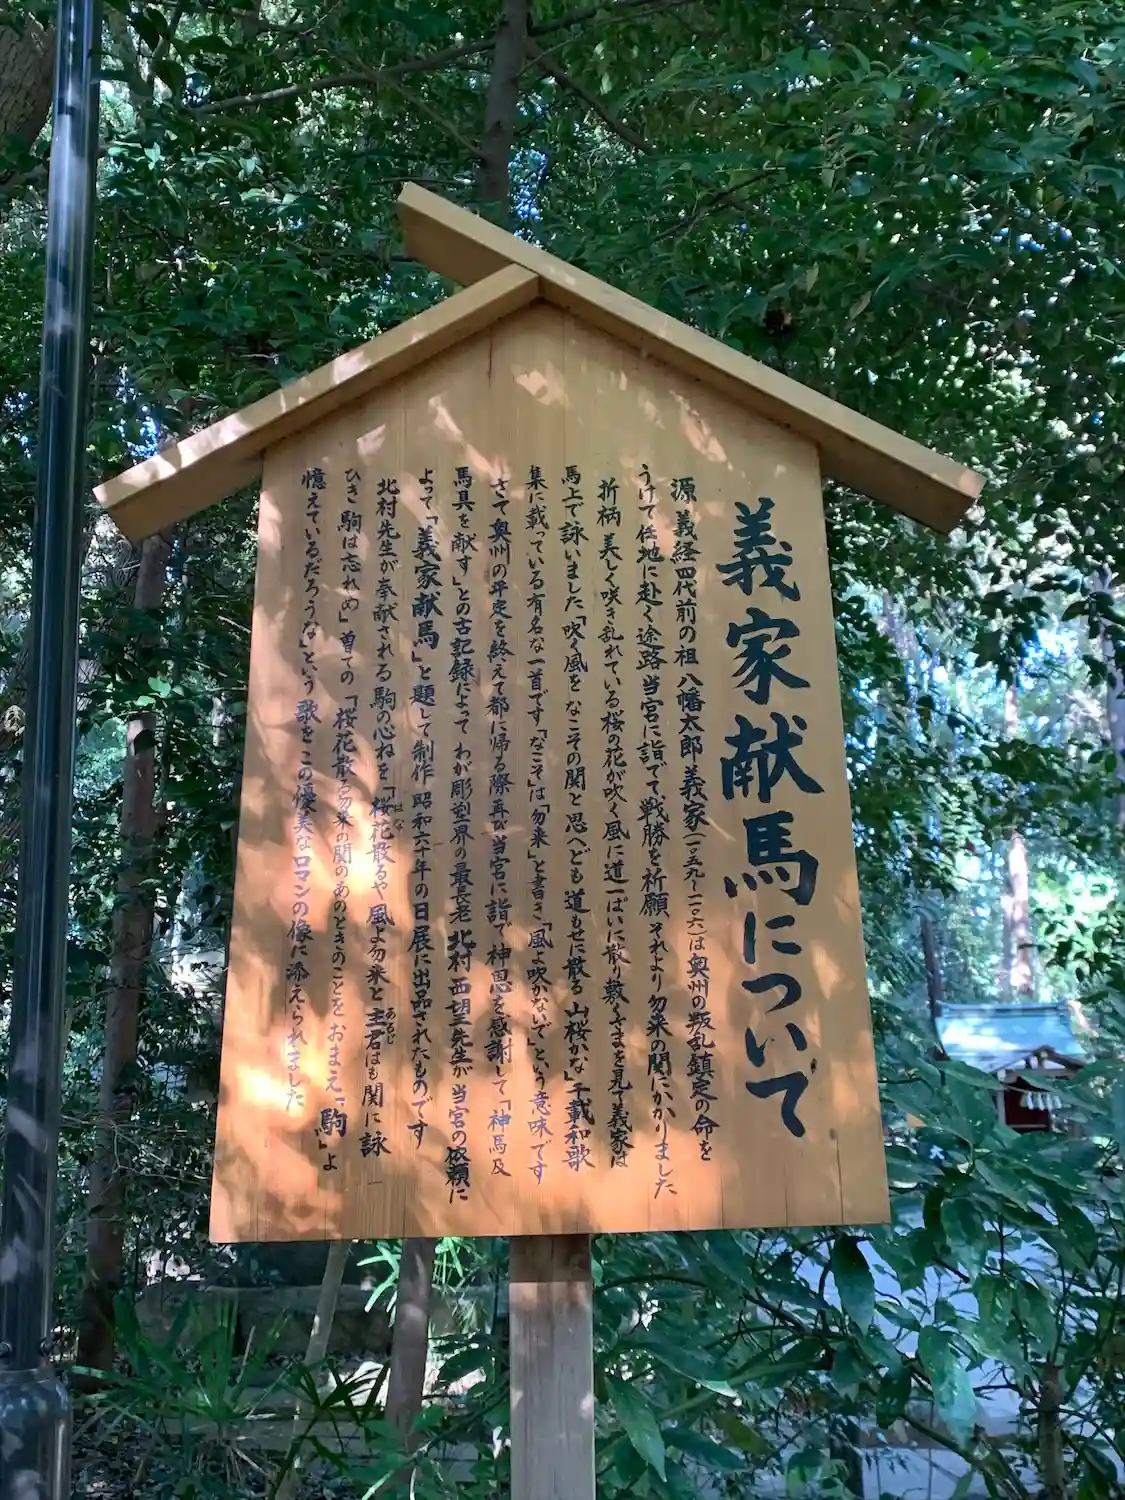 義家献馬について
源 義経四代前の祖 八幡太郎 義家(一〇五九〜一一〇六)は奥州の叛乱鎮定の命を
うけて 任地に赴く途路 当宮に詣でて、戦勝を祈願 それより勿来の関にかかりました
折柄 美しく咲き乱れている桜の花が吹く風に道一ぱいに散り敷くさまを見て義家は
馬上で詠いました「吹く風を なこその関と思へども 道もせに散る 山桜かな」千載和歌
集に載っている有名な一首です「なこそ」は「勿来」と書き「風よ吹かないで」という意味です
さて 奥州の平定を終えて都に帰る際 再び当宮に詣で 神恩を感謝して「神馬及
馬具を献す」との古記録によって わが彫塑界の最長老 北村西望先生が 当宮の依頼に
よって「義家献馬」と題して制作 昭和六十年の日展に出品されたものです
北村先生が奉献される駒の心ねを「桜花散るや 風よ勿来と 主君はも 関に 詠
はな
あるじ
ひき 駒は忘れめ」曽ての「桜花散る勿来の関のあのときのことをおまえ「駒」よ
憶えているだろうな」という歌をこの優美なロマンの像に添えられました